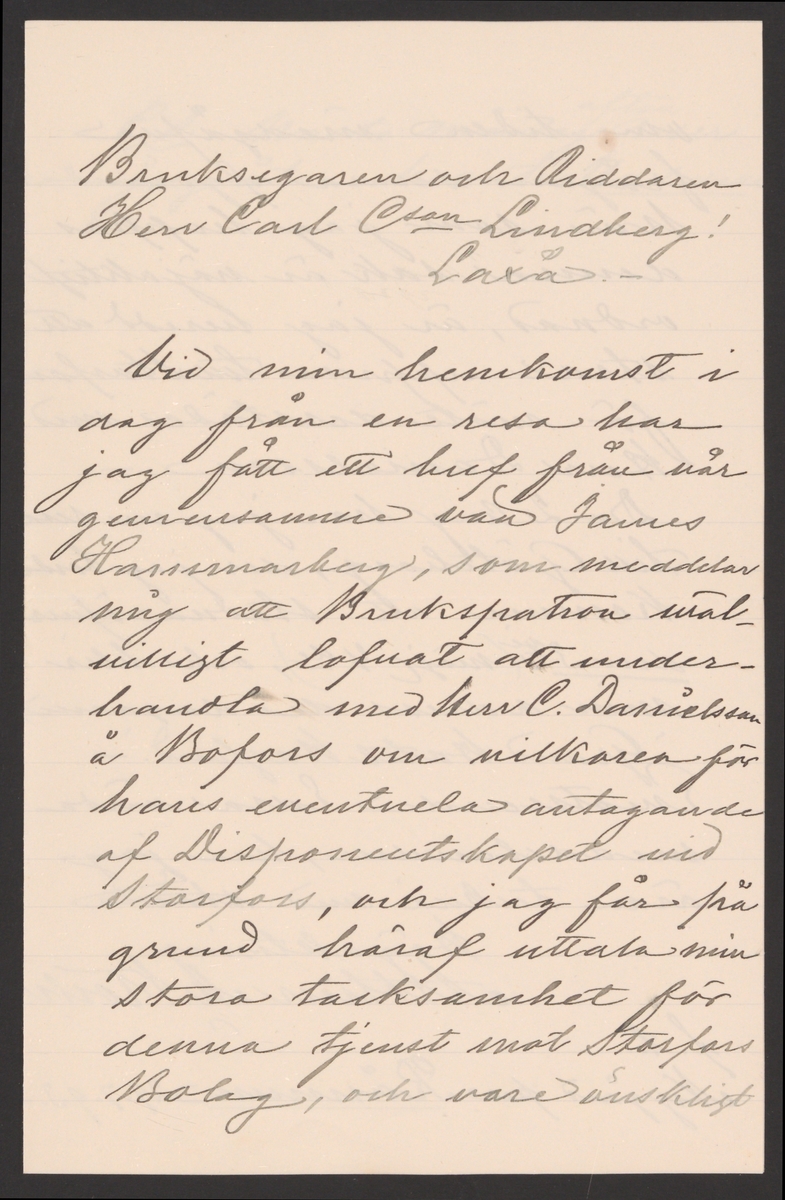 Bruksegaren och Riddaren
Herr Carl Cson Lindberg!
Laxå. -
Vid min hemkomst i
dag från en resa har
jag fått ett bref från vår
gemensamme vän James
Hammarberg, som meddelar
mig att Brukspatron väl-
villigt lofvat att under-
handla med Herr C. Danielsson
å Bofors om vilkoren för
hans eventuela antagande
af Disponentskapet vid
Storfors, och jag får på
grund häraf uttala min
stora tacksamhet för
denna tjenst mot Storfors
Bolag, och vore önskligt